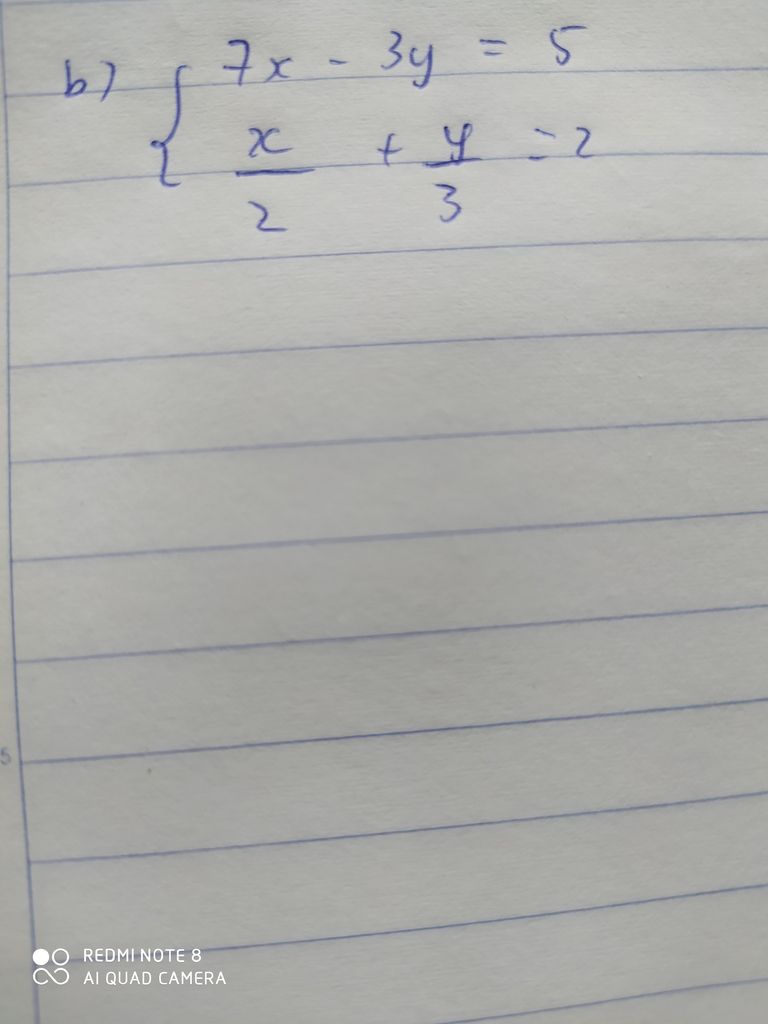 b) { 7x - 3y = 5
x/2 + y/3 = 2
5
REDMI NOTE 8
AI QUAD CAMERA